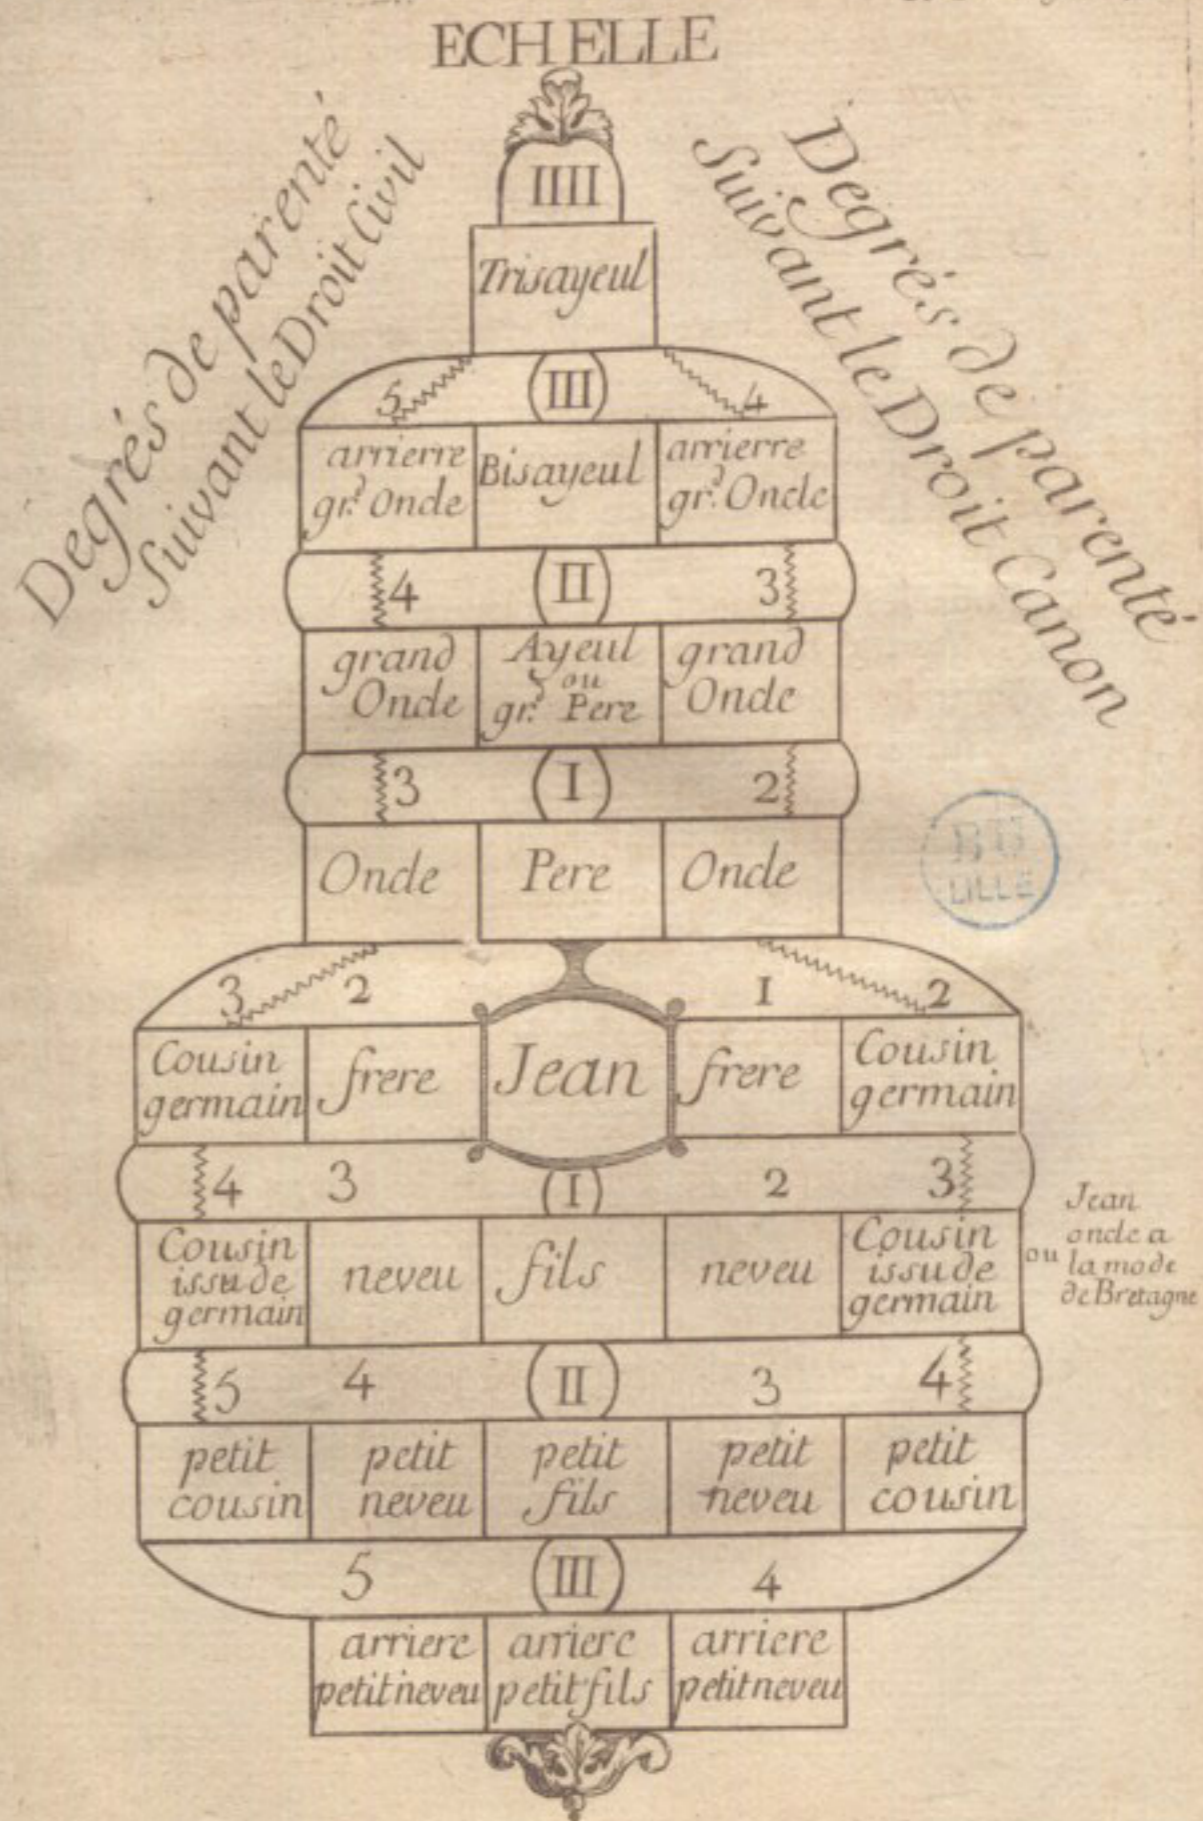 ECHELLE
Degrés de parenté
Suivant le Droit Civil
Degrés de parenté
Suivant le Droit Canon
IIII
Trisayeul
5 III 4
arrierre gr.d Oncle
Bisayeul
arrierre gr.d Oncle
4 II 3
grand Oncle
Ayeul ou gr.d Pere
grand Oncle
3 I 2
Oncle Pere Oncle
BU
LILLE
3 2 1 2
Cousin germain
frere
Jean
frere
Cousin germain
4 3 I 2 3
Cousin issu de germain
neveu
fils
neveu
Cousin issu de germain
ou
Jean
oncle a
la mode
de Bretagne
5 4 II 3 4
petit cousin
petit neveu
petit fils
petit neveu
petit cousin
5 III 4
arriere petit neveu
arriere petit fils
arriere petit neveu